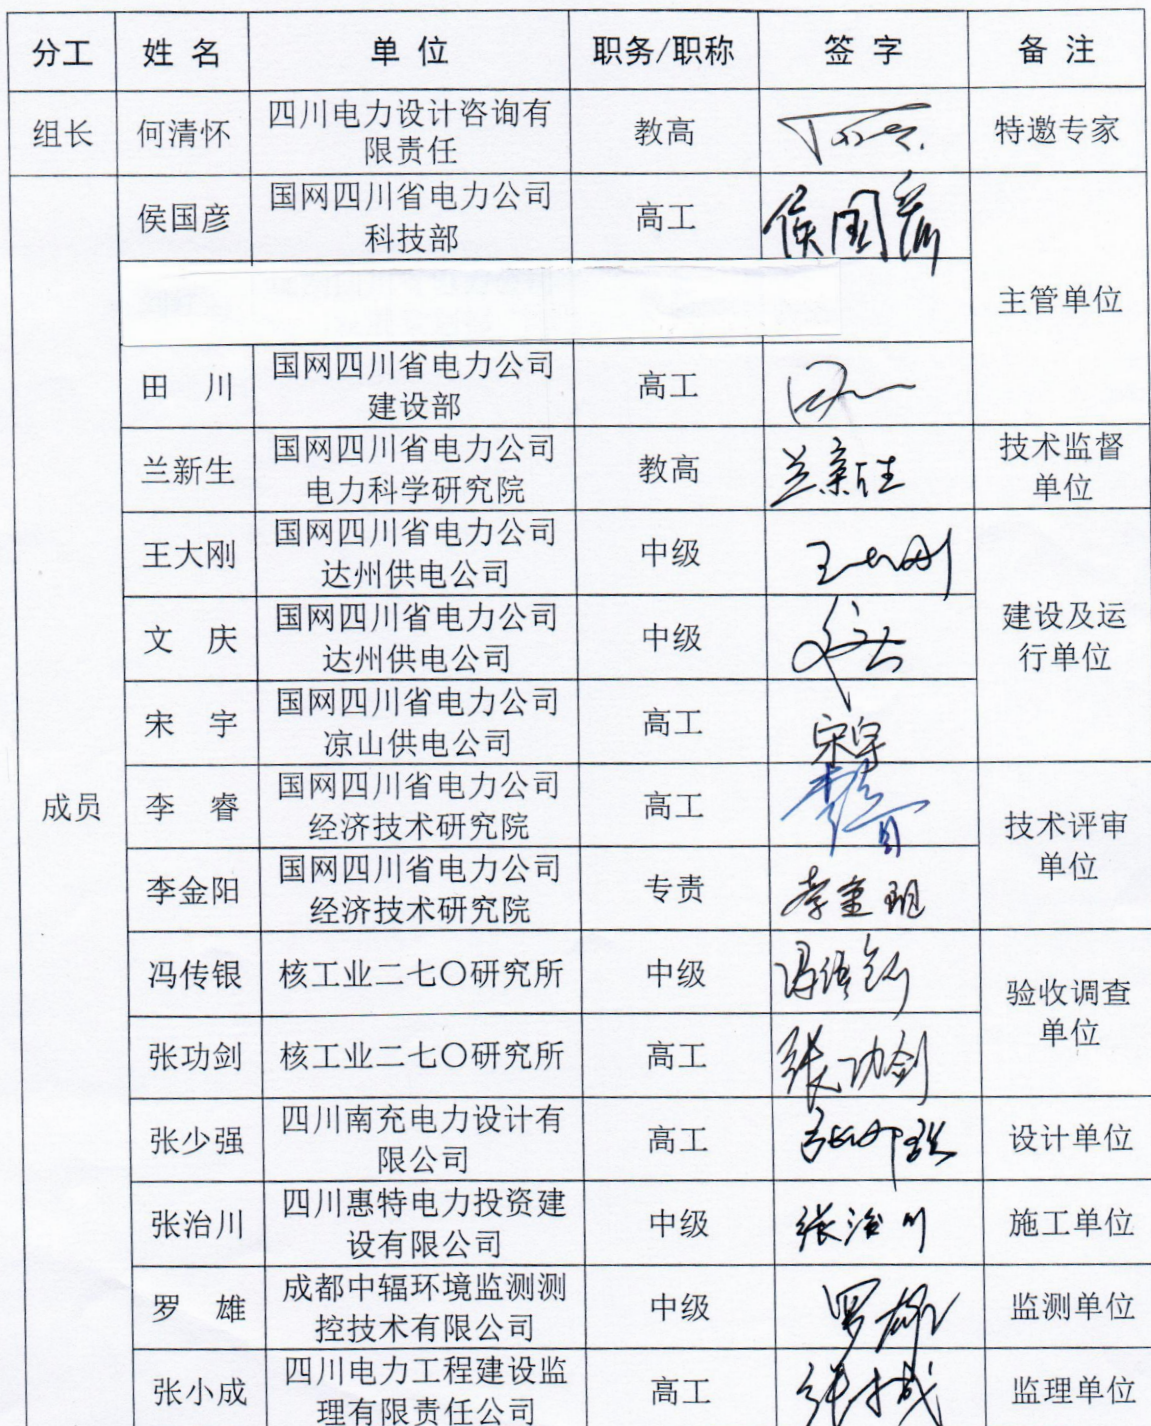 分工 姓名 单位 职务/职称 签字 备注
组长 何清怀 四川电力设计咨询有
限责任 教高 特邀专家
成员 侯国彦 国网四川省电力公司
科技部 高工 侯国彦 主管单位
田川 国网四川省电力公司
建设部 高工 田川
兰新生 国网四川省电力公司
电力科学研究院 教高 兰新生 技术监督
单位
王大刚 国网四川省电力公司
达州供电公司 中级 王大刚 建设及运
行单位
文庆 国网四川省电力公司
达州供电公司 中级 文庆
宋宇 国网四川省电力公司
凉山供电公司 高工 宋宇
李睿 国网四川省电力公司
经济技术研究院 高工 李睿 技术评审
单位
李金阳 国网四川省电力公司
经济技术研究院 专责 李金阳
冯传银 核工业二七〇研究所 中级 冯传银 验收调查
单位
张功剑 核工业二七〇研究所 高工 张功剑
张少强 四川南充电力设计有
限公司 高工 张少强 设计单位
张治川 四川惠特电力投资建
设有限公司 中级 张治川 施工单位
罗雄 成都中辐环境监测测
控技术有限公司 中级 罗雄 监测单位
张小成 四川电力工程建设监
理有限责任公司 高工 张小成 监理单位